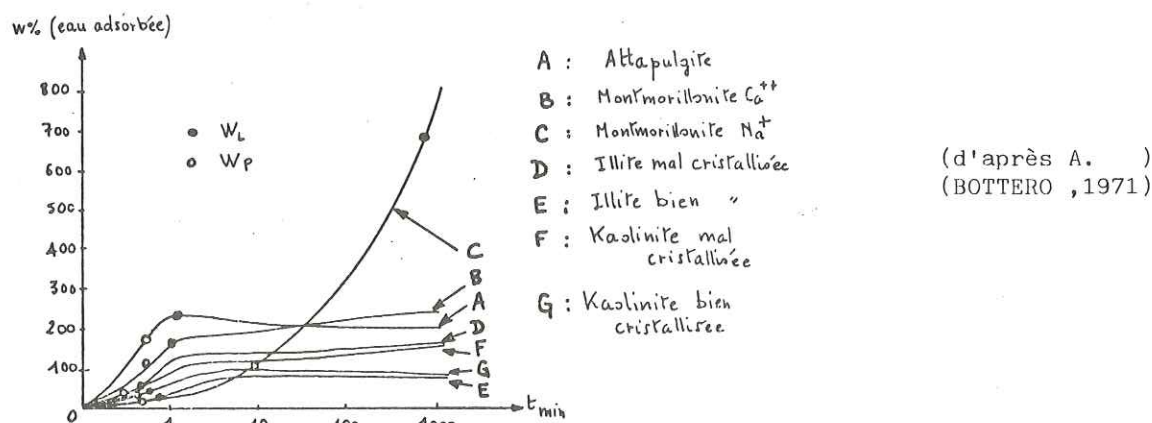 w% (eau adsorbée)
800
700
600
500
400
300
200
100
0
● W_L
○ W_P
C
B
A
D
F
G
E
1
10
100
1000
t min
A : Attapulgite
B : Montmorillonite Ca++
C : Montmorillonite Na+
D : Illite mal cristallisée
E : Illite bien "
F : Kaolinite mal
cristallisée
G : Kaolinite bien
cristallisée
(d'après A. )
(BOTTERO ,1971)